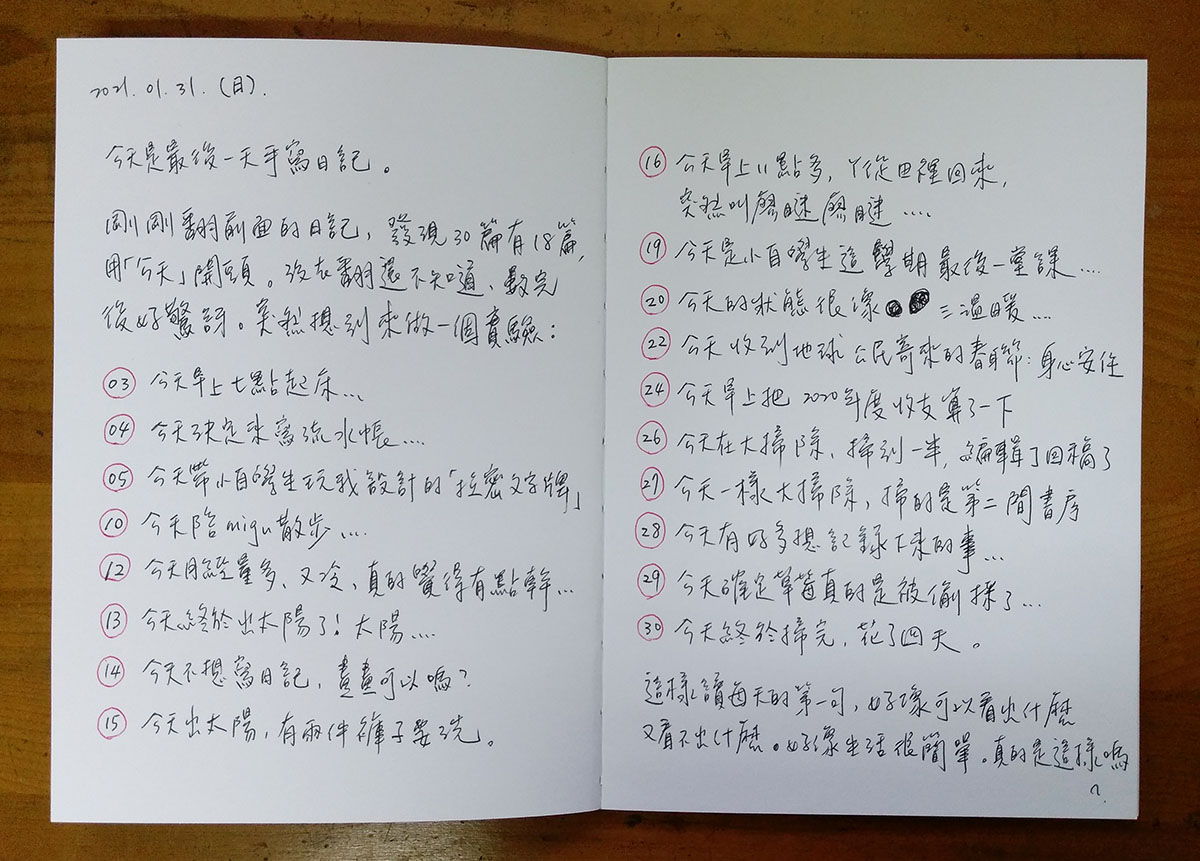 2021. 01. 31. (日).
今天是最後一天手寫日記。
剛剛翻前面的日記，發現30篇有18篇，
用「今天」開頭。沒在翻還不知道、數完
後好驚訝。突然想到來做一個實驗：
03 今天早上七點起床...
04 今天決定來寫流水帳....
05 今天帶小自學生玩我設計的「拉密文字牌」
10 今天陪migu散步....
12 今天月經量多、又冷、真的覺得有點幹...
13 今天終於出太陽了！太陽....
14 今天不想寫日記，畫畫可以嗎？
15 今天出太陽，有兩件褲子要洗。
16 今天早上11點多，丫從田裡回來，
突然叫廖瞇廖瞇....
19 今天是小自學生這學期最後一堂課....
20 今天的狀態很像 三溫暖....
22 今天收到地球公民寄來的春聯：身心安住
24 今天早上把2020年度收支算了一下
26 今天在大掃除、掃到一半，編輯丁回稿了
27 今天一樣大掃除，掃的是第二間書房
28 今天有好多想記錄下來的事...
29 今天確定草莓真的是被偷採了...
30 今天終於掃完，花了四天。
這樣讀每天的第一句，好像可以看出什麼
又看不出什麼。好像生活很簡單。真的是這樣嗎
？